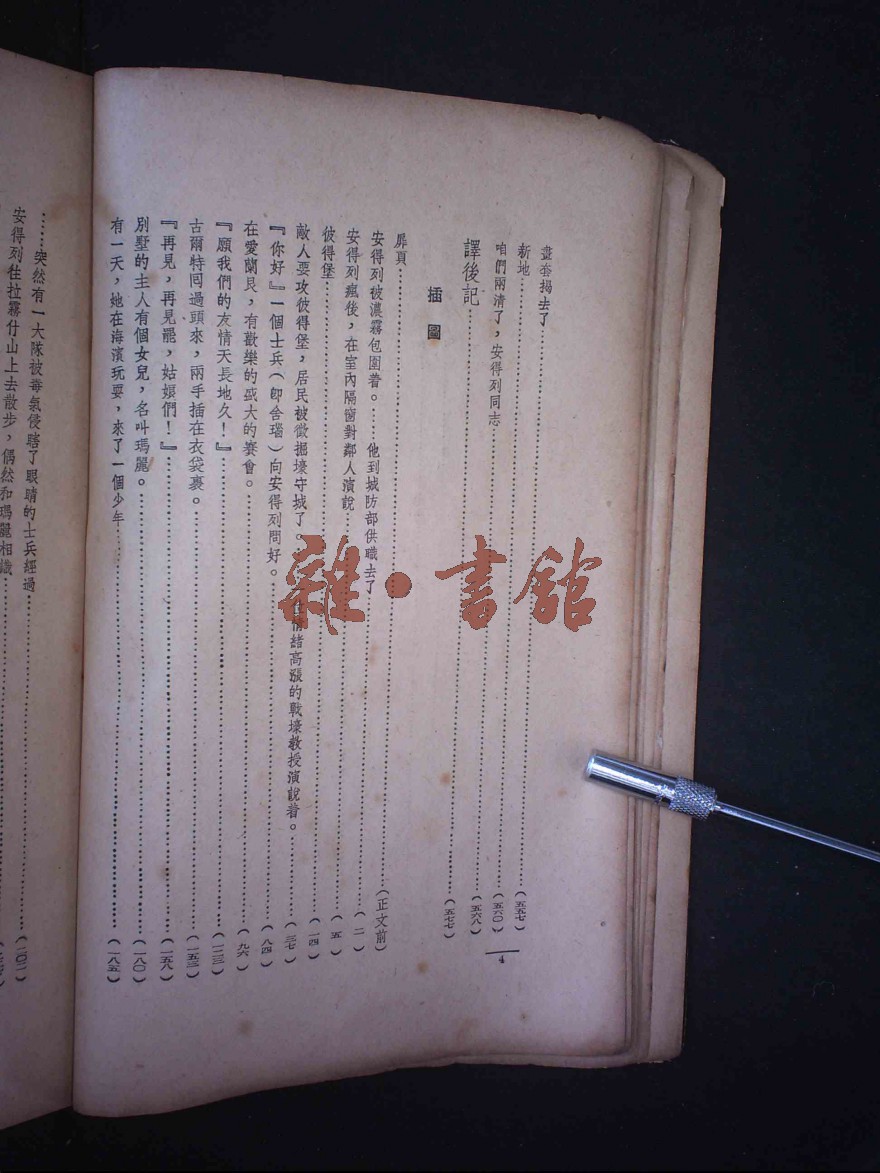 畫套揭去了……(五五七)
新地……(五六〇)
咱們兩清了,安得列同志……(五六八)
譯後記……(五七七)
4
插圖
扉頁……(正文前)
安得列被濃霧包圍着。……他到城防部供職去了……(二)
安得列瘋後,在室內隔窗對鄰人演說……(五)
彼得堡……(一四)
敵人要攻彼得堡,居民被徵掘壕守城了。情緒高漲的戰壕教授演說着。……(三七)
『你好』一個士兵(卽舍瑙)向安得列問好。……(八四)
在愛蘭艮,有歡樂的盛大的賽會。……(九六)
『願我們的友情天長地久!』……(一二三)
古爾特囘過頭來,兩手插在衣袋裏。……(一五三)
『再見,再見罷,姑娘們!』……(一五八)
別墅的主人有個女兒,名叫瑪麗。……(一八〇)
有一天,她在海濱玩耍,來了一個少年……(一八五)
……突然有一大隊被毒氣侵瞎了眼睛的士兵經過……
安得列往拉霧什山上去散步,偶然和瑪麗相識……
雜·書館